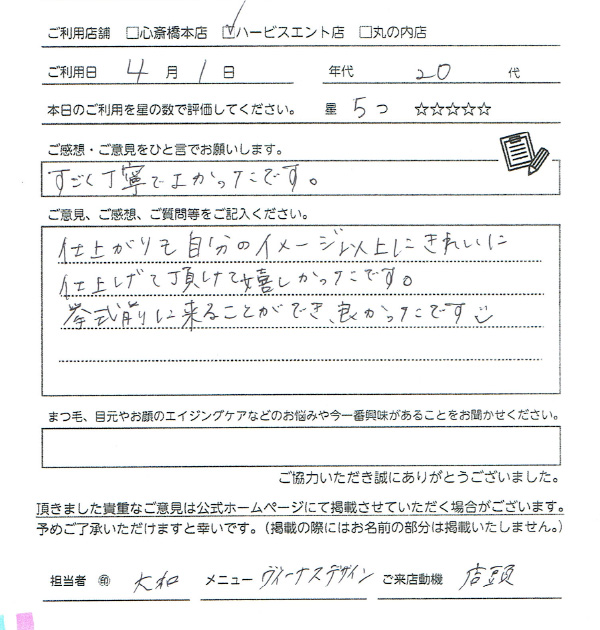 ご利用店舗 □心斎橋本店 ☑ハービスエント店 □丸の内店
ご利用日 4 月 1 日 年代 20 代
本日のご利用を星の数で評価してください。 星 5つ ☆☆☆☆☆
ご感想・ご意見をひと言でお願いします。
すごく丁寧でよかったです。
ご意見、ご感想、ご質問等をご記入ください。
仕上がりも自分のイメージ以上にきれいに
仕上げて頂けて嬉しかったです。
挙式前に来ることができ、良かったです
まつ毛、目元やお顔のエイジングケアなどのお悩みや今一番興味があることをお聞かせください。
ご協力いただき誠にありがとうございました。
頂きました貴重なご意見は公式ホームページにて掲載させていただく場合がございます。
予めご了承いただけますと幸いです。(掲載の際にはお名前の部分は掲載いたしません。)
担当者 ㊞ 大和 メニュー ヴィーナスデザイン ご来店動機 店頭